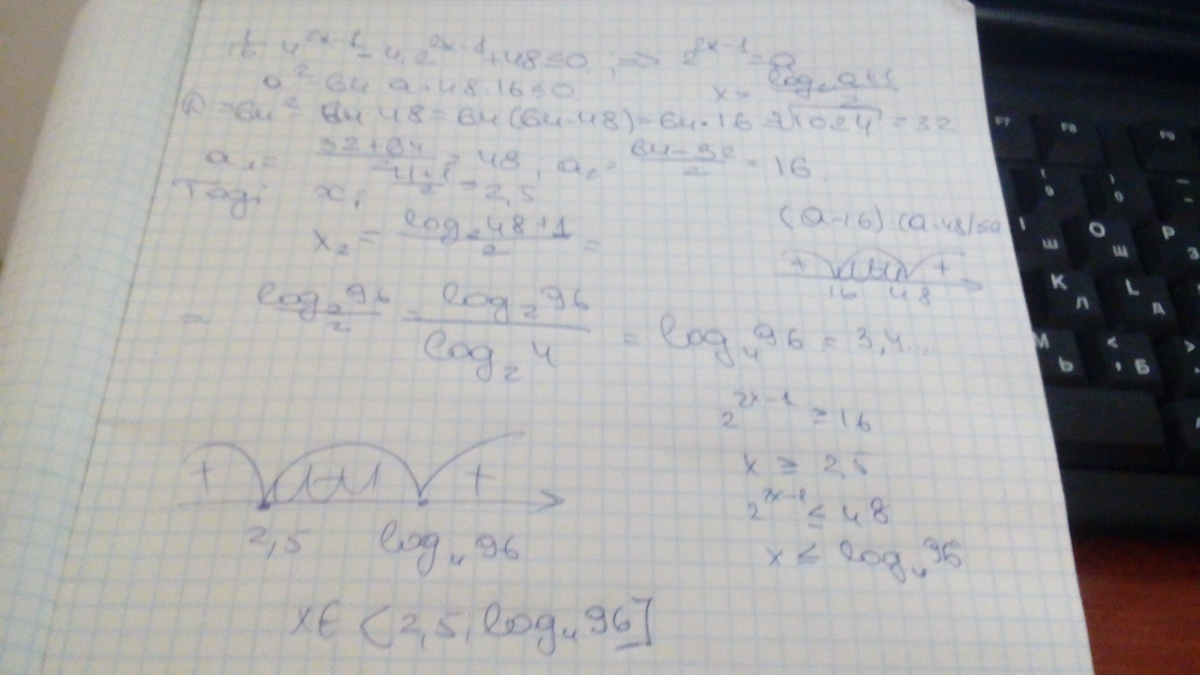 1/16 4^(2x-1) - 4·2^(2x-1) + 48 ≤ 0 ; ⇒ 2^(2x-1) = a
a² - 64 a + 48·16 ≤ 0
x = (log₂ a + 1)/2
= 64(64-48) = 64·16 = √1024 = 32
a₁ = (32+64)/2 = 48 ; a₂ = (64-32)/2 = 16
Тоді x₁ = (4+1)/2 = 2,5
(a-16)·(a-48) ≤ 0
x₂ = (log₂ 48 + 1)/2 =
+ - +
16 48
= log₂ 96/2 = log₂ 96/log₂ 4 = log₄ 96 = 3,4...
2^(2x-1) ≥ 16
x ≥ 2,5
+ - +
2^(2x-1) ≤ 48
2,5 log₄ 96
x ≤ log₄ 96
x ∈ (2,5; log₄ 96]
F7 F8 F9
Ш Щ З
K Л L Д
М Ь < , Б >